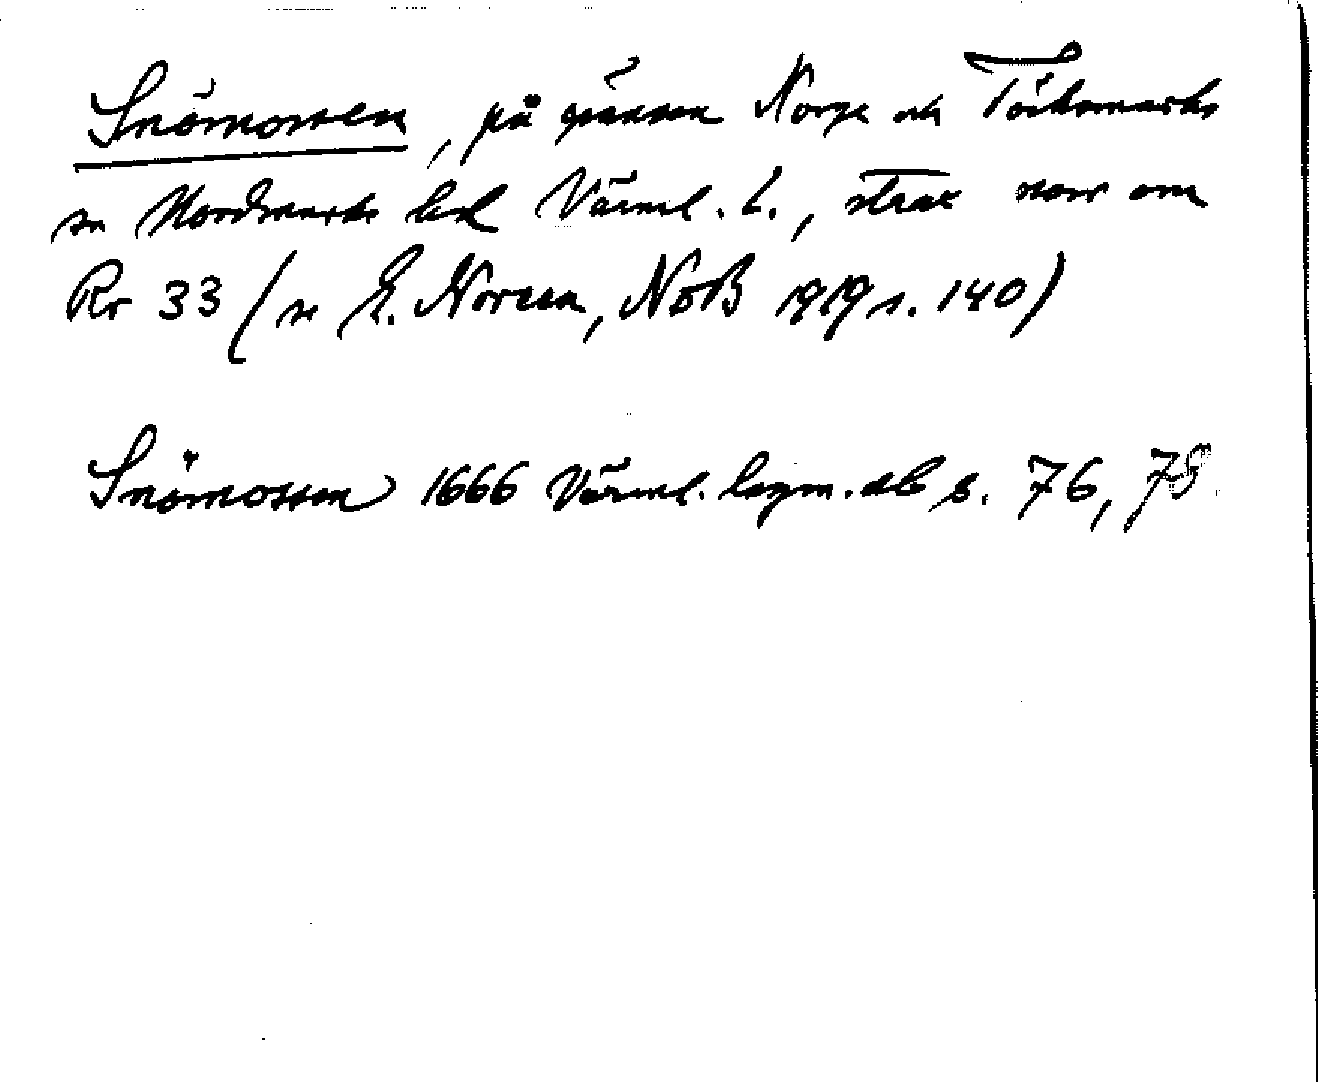 Snömossen, på gränsen Norge och Töcksmarks
sn Nordmarks hd Värml. l., strax norr om
Rr 33 (se E. Noreen, NoB 1919 s. 140)
Snömossen 1666 Värml. lagm. db s. 76, 78